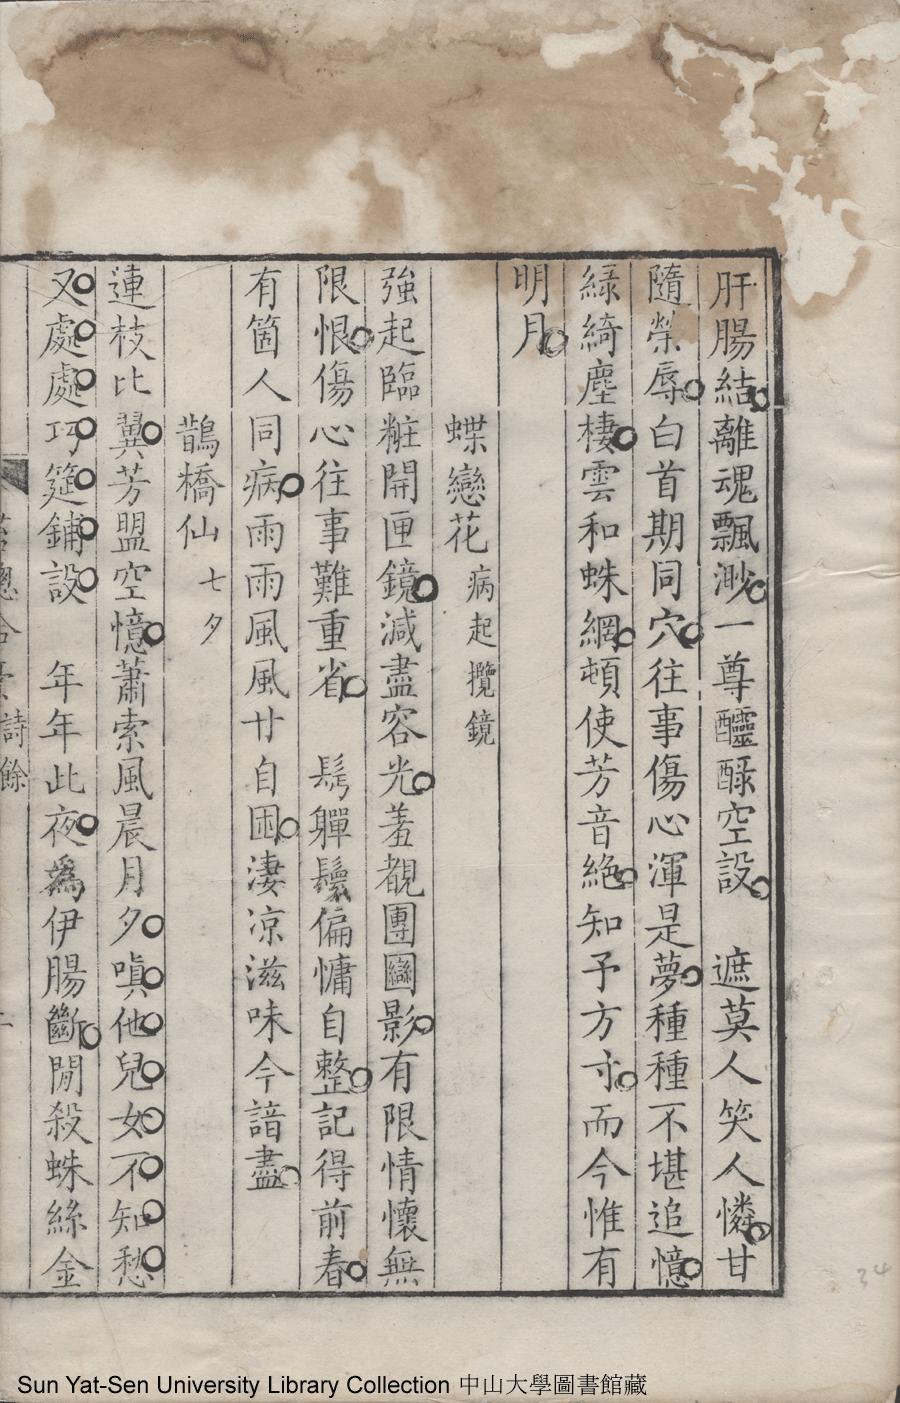 肝腸結離魂飄渺一尊醽醁空設　遮莫人笑人憐甘
隨榮辱白首期同穴往事傷心渾是夢種種不堪追憶
綠綺塵棲雲和蛛網頓使芳音絶知予方寸而今惟有
明月
蝶戀花 病起攬鏡
強起臨粧開匣鏡減盡容光羞覩團圞影有限情懷無
限恨傷心往事難重省　髩軃鬟偏慵自整記得前春
有箇人同病雨雨風風廿自困淒凉滋味今諳盡
鵲橋仙 七夕
連枝比翼芳盟空憶蕭索風晨月夕嗔他兒女不知愁
又處處巧筵鋪設　年年此夜爲伊腸斷閒殺蛛絲金
詩餘
Sun Yat-Sen University Library Collection 中山大學圖書館藏
34